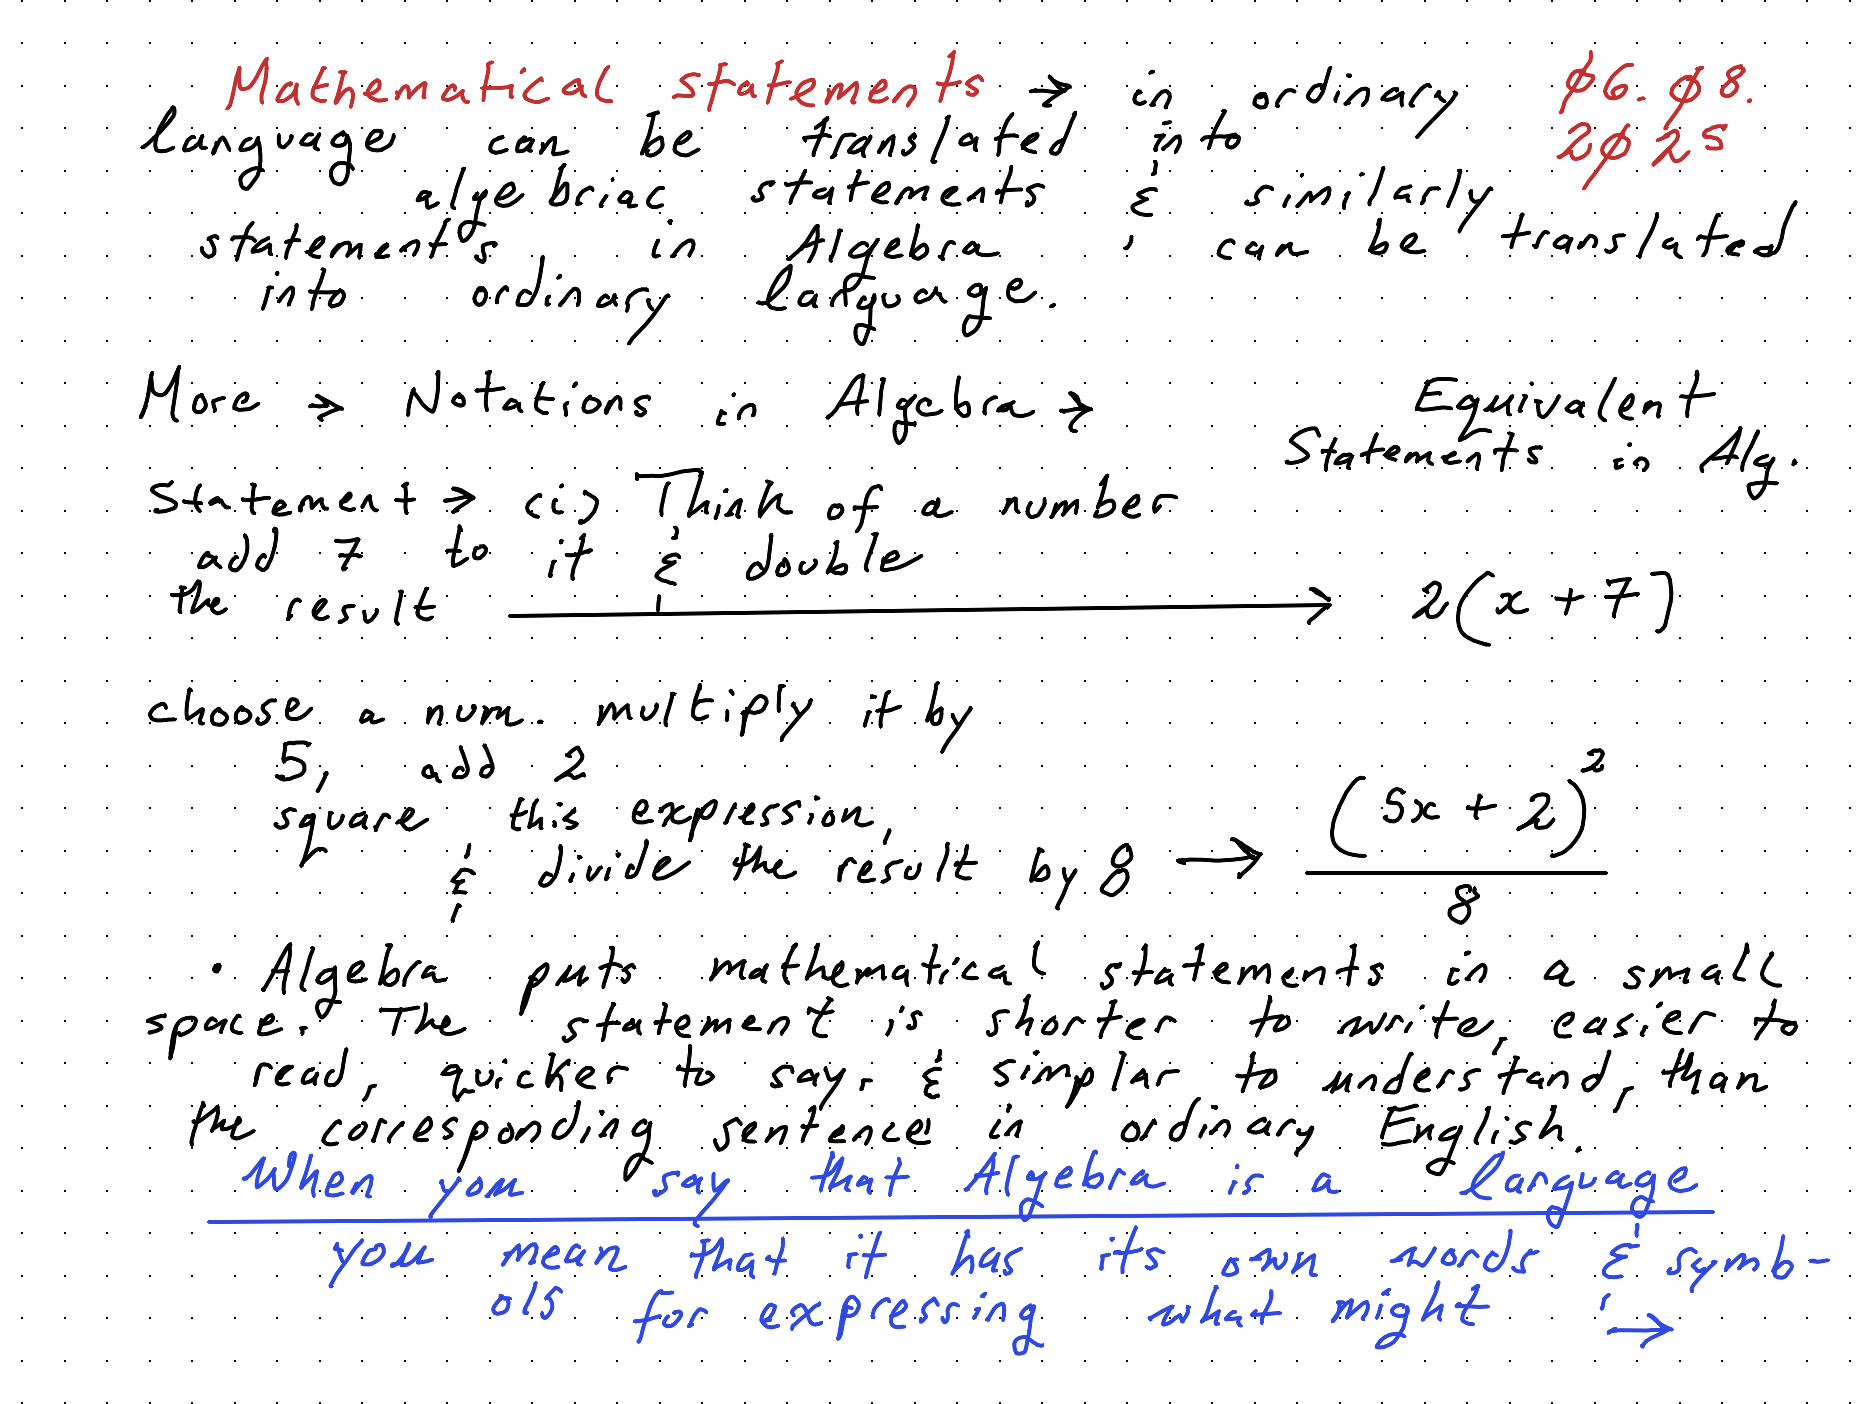 Mathematical statements → in ordinary
Ø6. Ø8.
2Ø25
language can be translated into
algebriac statements & similarly
statements in Algebra, can be translated
into ordinary language.
More → Notations in Algebra →
Equivalent
Statements in Alg.
Statement → (i) Think of a number
add 7 to it & double
the result ⟶ 2(x + 7)
choose a num. multiply it by
5, add 2
square this expression,
& divide the result by 8 → (5x + 2)² / 8
• Algebra puts mathematical statements in a small
space. The statement is shorter to write, easier to
read, quicker to say, & simplar to understand, than
the corresponding sentence in ordinary English.
When you say that Algebra is a language
you mean that it has its own words & symb-
ols for expressing what might →